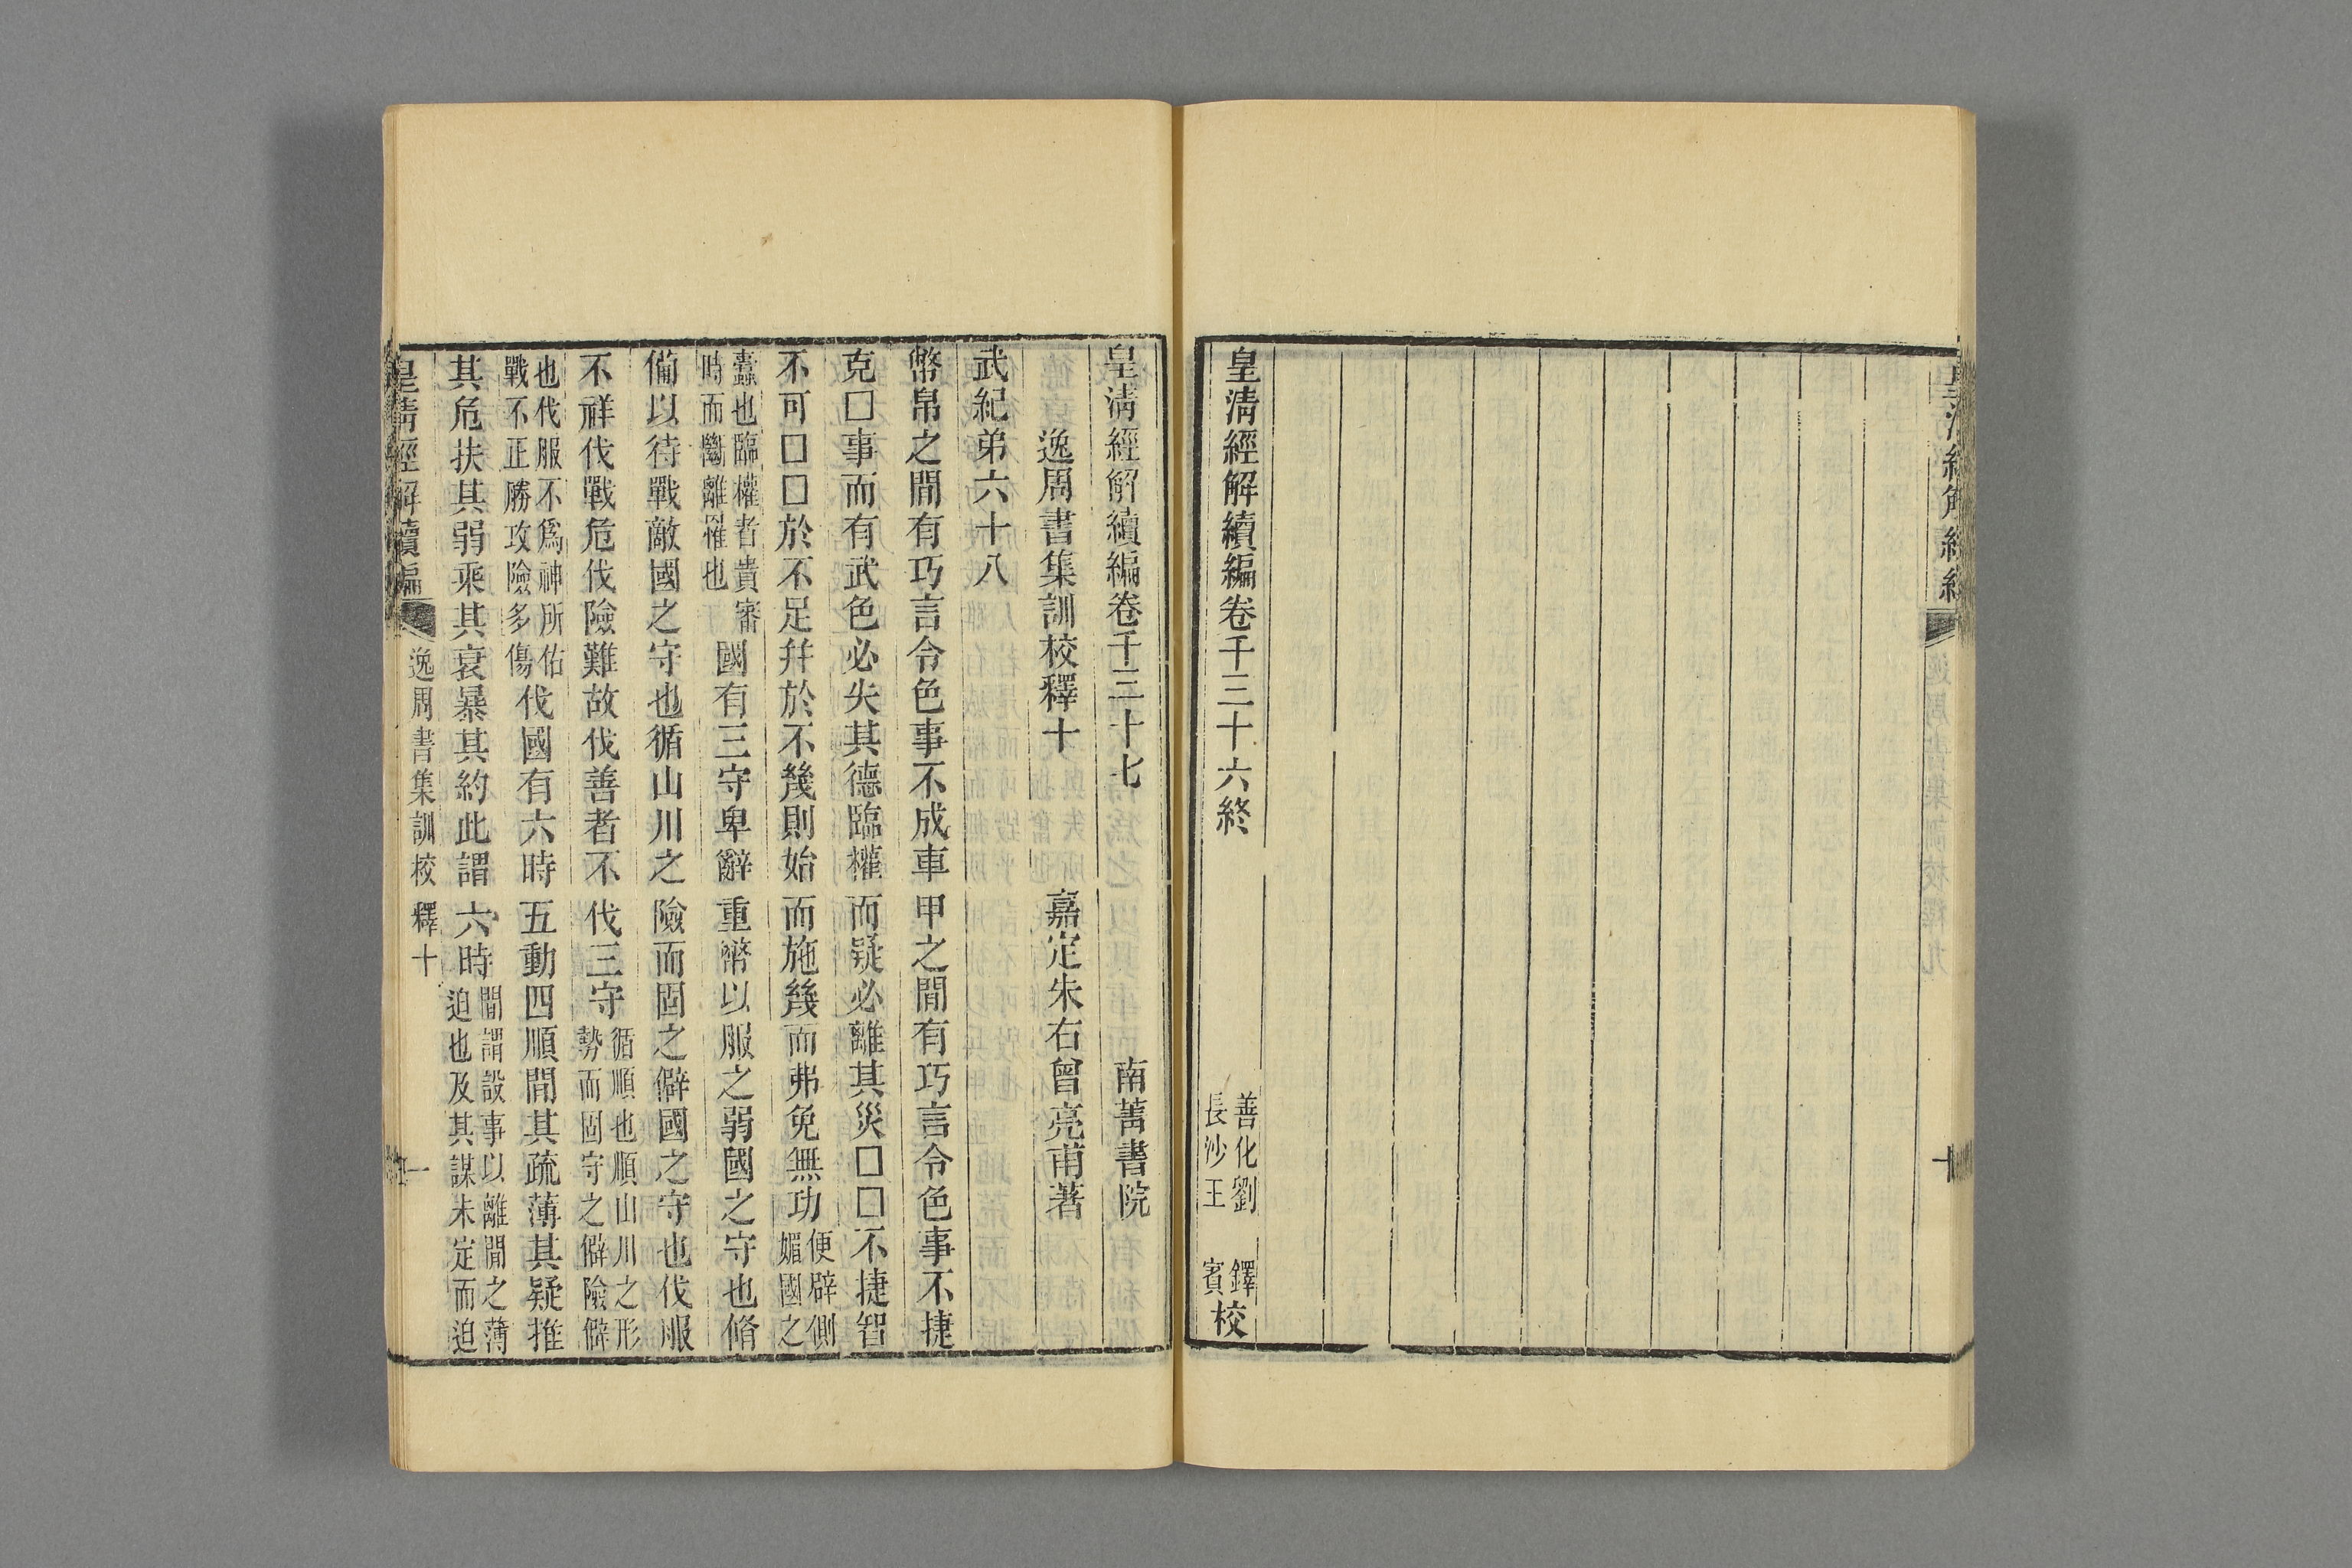 皇清經解續編卷千三十六終
善化劉　鐸
長沙王　賓
校
皇清經解續編卷千三十七
南菁書院
逸周書集訓校釋十
嘉定朱右曾亮甫著
武紀弟六十八
幣帛之閒有巧言令色事不成車甲之閒有巧言令色事不捷
克□事而有武色必失其德臨權而疑必離其災□□不捷智
不可□□於不足幷於不幾則始而施幾而弗免無功
便辟側
媚國之
蠹也臨權者貴審
時而斷離罹也
國有三守卑辭重幣以服之弱國之守也脩
備以待戰敵國之守也循山川之險而固之僻國之守也伐服
不祥伐戰危伐險難故伐善者不伐三守
循順也順山川之形
勢而固守之僻險僻
也伐服不爲神所佑
戰不正勝攻險多傷
伐國有六時五動四順閒其疏薄其疑推
其危扶其弱乘其衰暴其約此謂六時
閒謂設事以離閒之薄
迫也及其謀未定而迫
皇清經解續編
逸周書集訓校釋十
一